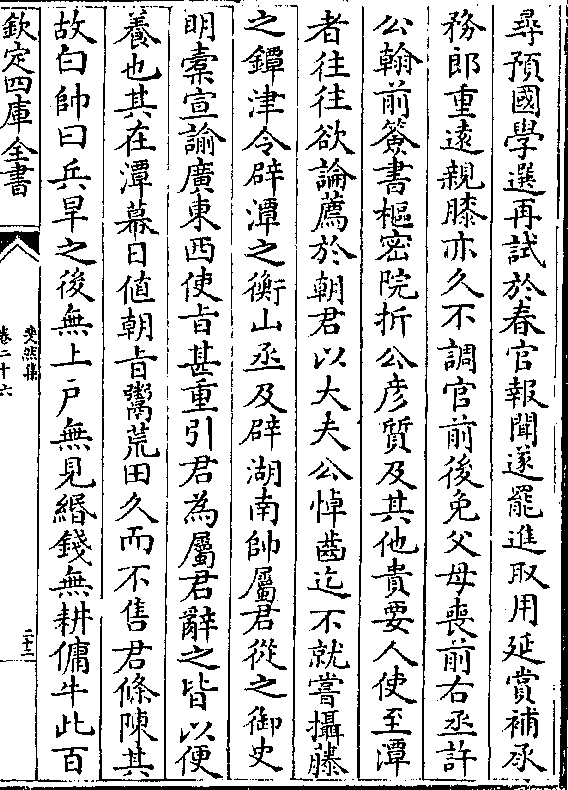 尋預國學選再試於春官報聞遂罷進取用延賞補承
務郎重遠親膝亦久不調官前後免父母喪前右丞許
公翰前簽書樞密院折公彦質及其他貴要人使至潭
者往往欲論薦於朝君以大夫公悼齒迄不就嘗攝藤
之鐔津令辟潭之衡山丞及辟湖南帥屬君從之御史
明橐宣諭廣東西使㫖甚重引君為屬君辭之皆以便
養也其在潭幕日值朝㫖鬻荒田久而不售君條陳其
故白帥曰兵旱之後無上戸無見緡錢無耕傭牛此百
欽定四庫全書
斐然集
卷二十六
二十三